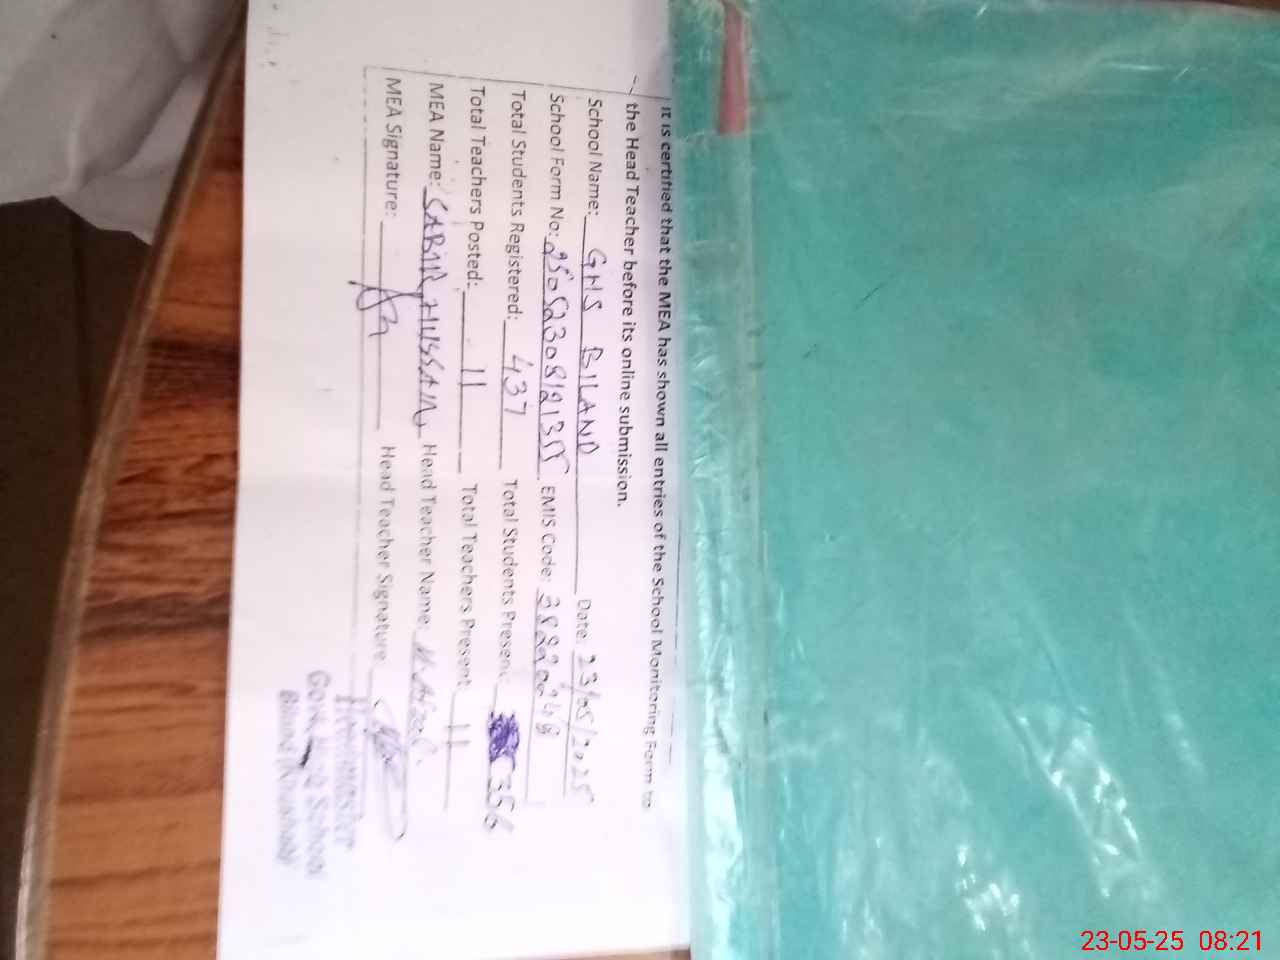 It is certified that the MEA has shown all entries of the School Monitoring Form to
the Head Teacher before its online submission.
School Name: GHS BILAND Date: 23/05/2025
School Form No: EMIS Code:
Total Students Registered: 437 Total Students Present 356
Total Teachers Posted: 11 Total Teachers Present: 11
MEA Name: SABIR HUSSAIN Head Teacher Name:
MEA Signature: Head Teacher Signature
Headmaster
Govt. High School
Biland (Khushab)
23-05-25 08:21